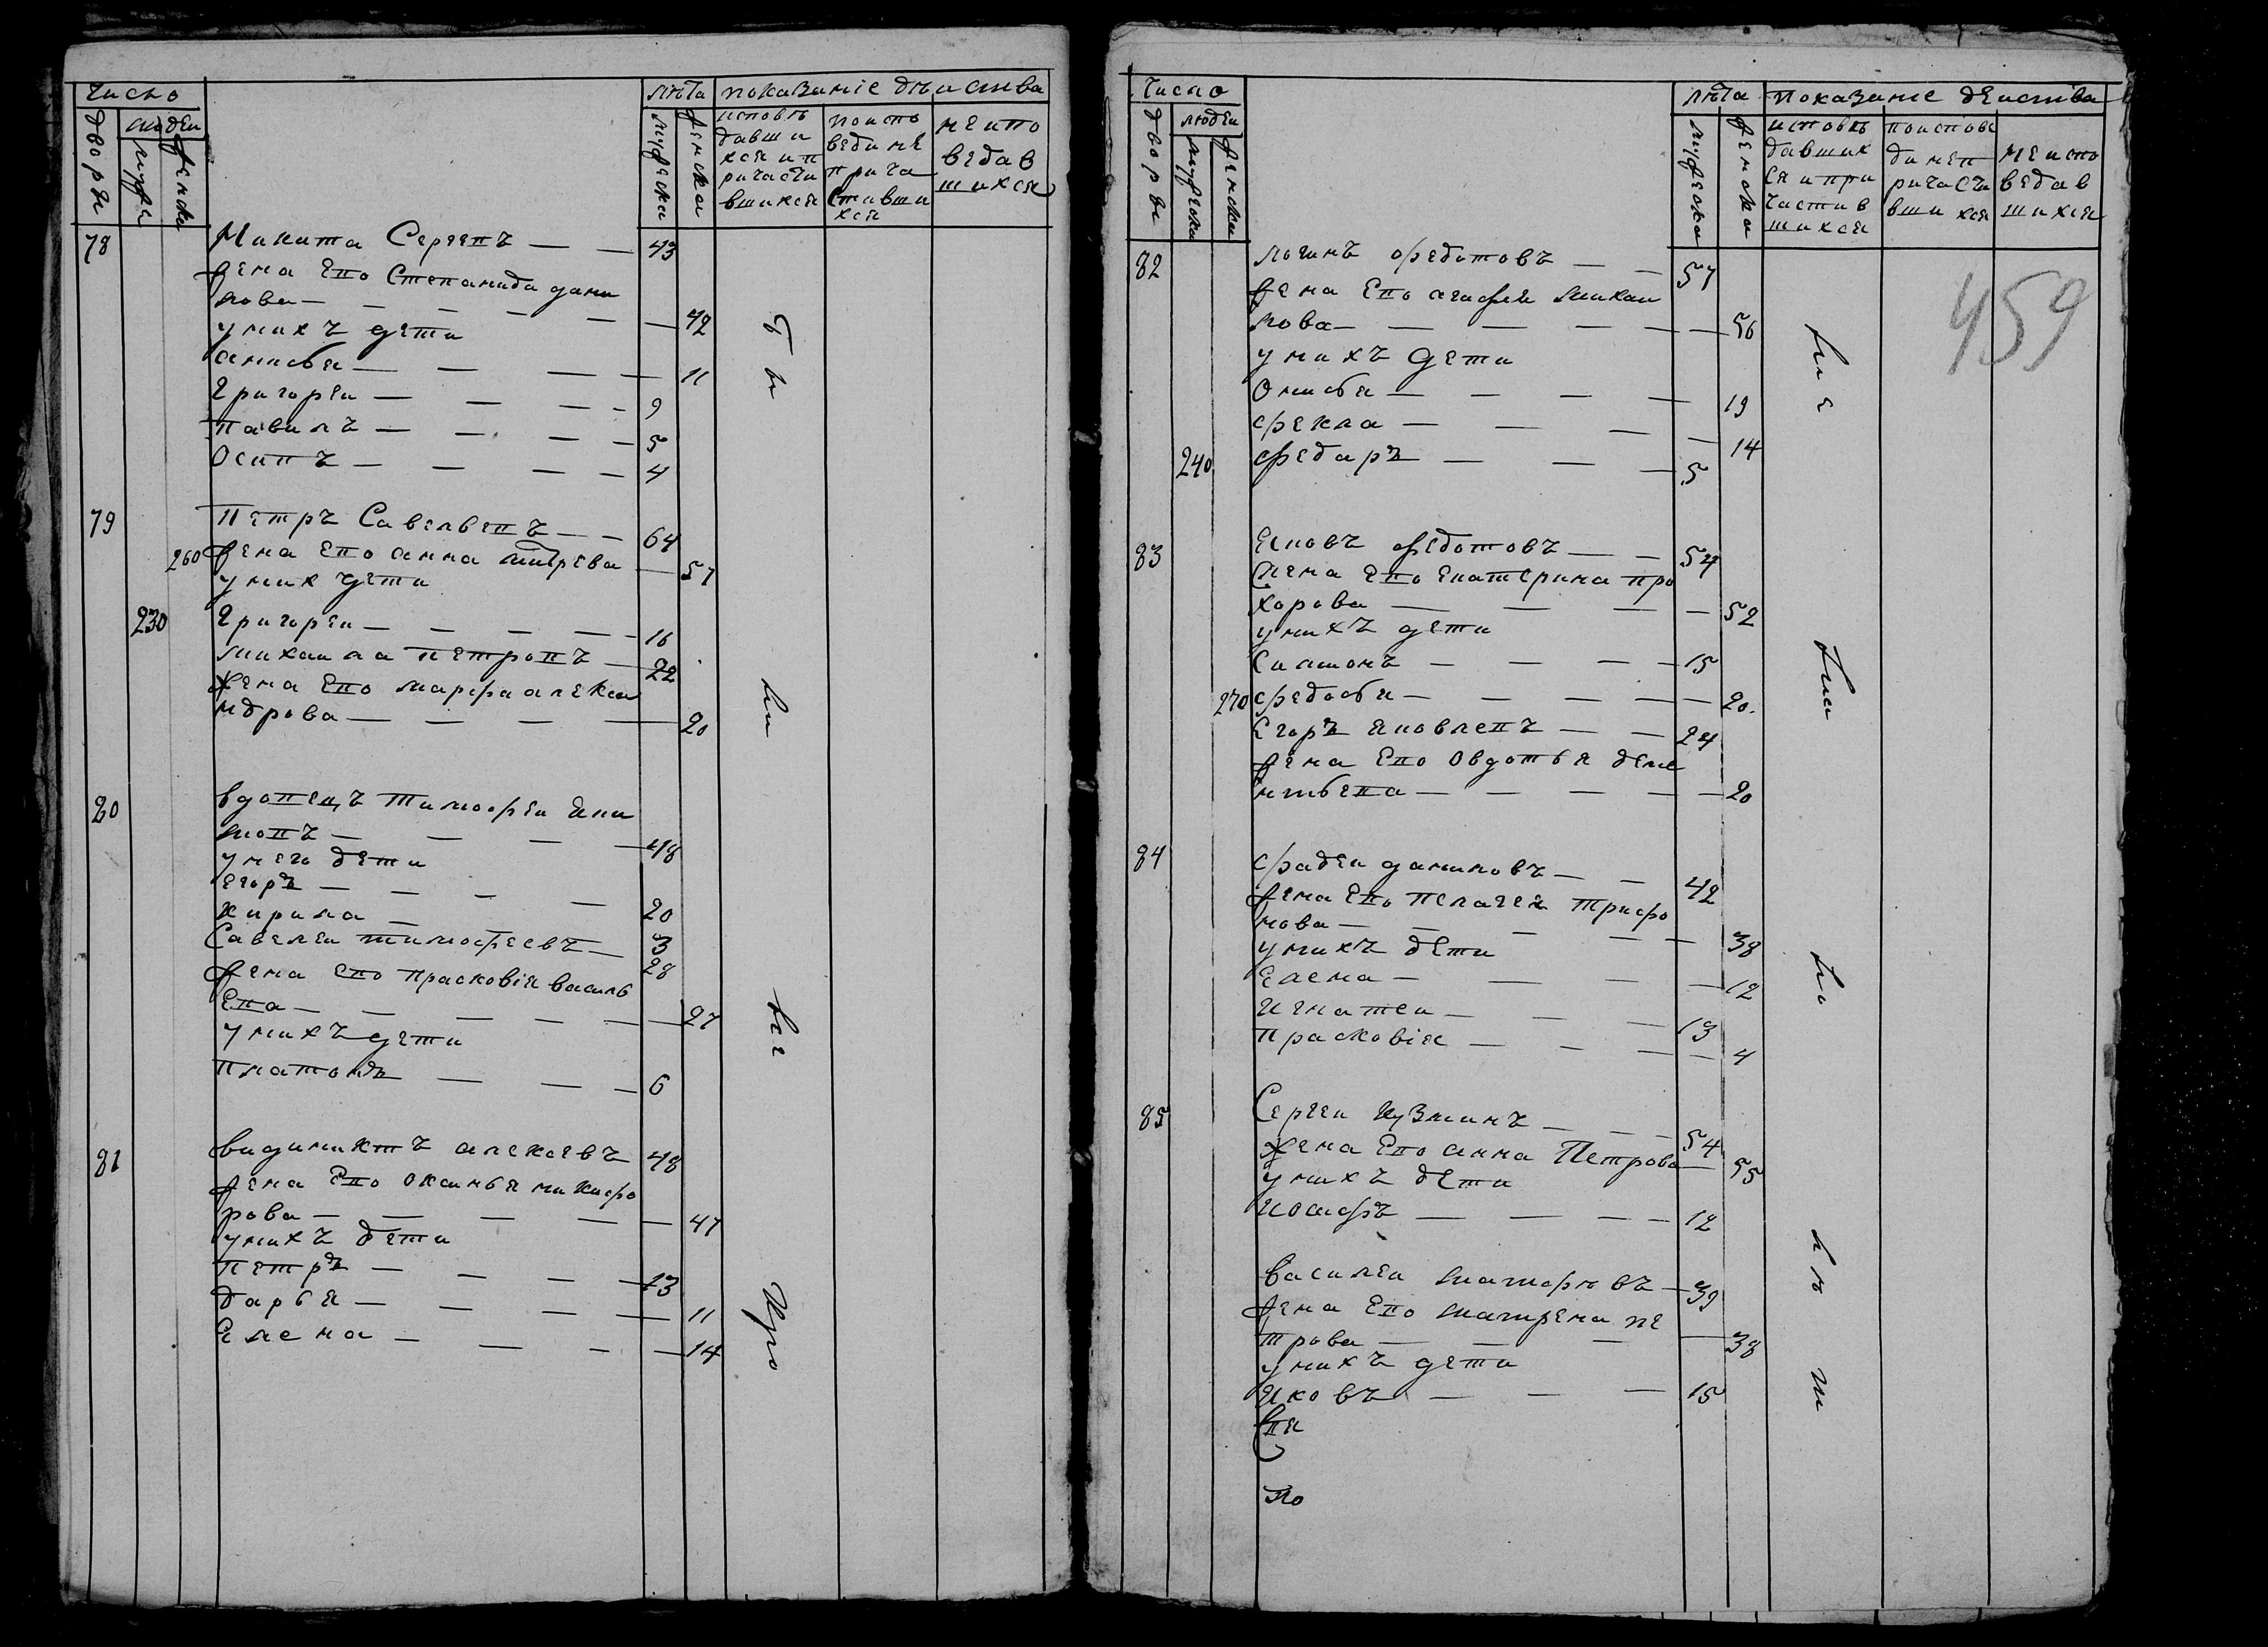 Число
дворы
людеи
мужеска
женска
лѣта
мужеска
женска
показаніе дѣиства
исповѣ
давши
хся и п
ричасти
вшихся
поиспо
веди не
прича
стивши
хся
неиспо
ведав
шихся
78 Микита Сергеевъ — — 43
жена Ево Степанида дани
лова — — — — — 42
у нихъ дети
анисья — — — — 11
Григореи — — — - 9
Павилъ — — — — 5
Осипъ — — — — 4
79 Петръ Савельевъ — — 64
260 жена Ево анна — 57
у них дети
230 Григореи — — — — 16
Михаила Петровъ — 22
жена Ево Марфа алекса
ндрова — — — — — 20
80 вдовецъ Тимофеи Яки
мовъ — — — — 48
у него дети
Егоръ — — — — 20
Кирила — 3
Савелеи тимофеевъ — 28
жена Ево прасковія василь
Ева — — — — — — 27
у нихъ дети
Платонъ — — — — 6
81 Видиниктъ алексевъ 48
жена Ево оксинья никифо
рова — — — — — 47
у нихъ дети
Петръ — — — — 13
Дарья — — — — — 11
Елена — — — — 14
Число
дворы
людеи
мужеска
женска
лѣта
мужеска
женска
показаніе деиства
исповѣ
давших
ся и при
частив
шихся
поиспове
ди неп
ричасти
вшихся
неиспо
ведав
шихся
459
82 Логинъ федотовъ — — 57
жена Ево агафья михаи
лова — — — — — — 56
у нихъ дети
Онисья — — — — — 19
фекла — — — — 14
240 федаръ — — — 5
83 Яковъ федотовъ — — 54
жена Ево Екатерина про
хорова — — — — 52
у нихъ дети
Силионъ — — — — 15
270 федосья — — — — — 20
Егоръ Яковлевъ — — 24
жена Ево Овдотья деме
нтьева — — — — — — 20
84 фадеи даниловъ — — 42
жена Ево Пелагея Трифо
нова — — — — — — 38
у нихъ дети
Елена — — — — 12
Игнатеи — — — — 13
Прасковія — — — — 4
85 Сергеи Кузминъ — — — 54
жена Ево анна Петрова — 55
у нихъ дети
иосифъ — — — — 12
Василеи — 39
жена Ево матрена пе
трова — — — — 38
у нихъ дети
Яковъ — — — 15